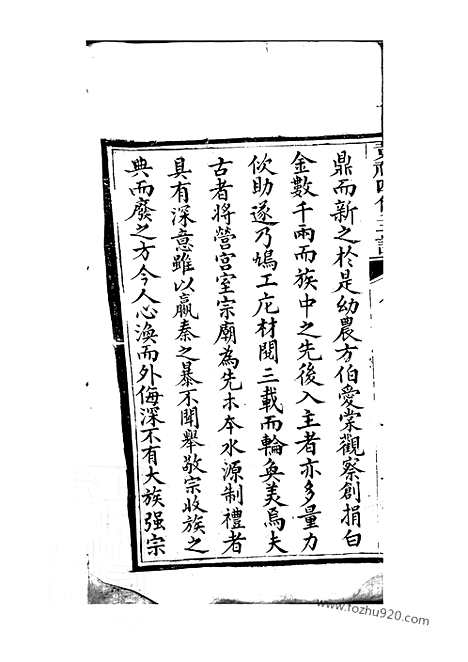 鼎而新之於是幼農方伯愛棠觀察創捐白
金數千兩而族中之先後入主者亦多量力
佽助遂乃鳩工庀材閱三載而輪奐美焉夫
古者將營宮室宗廟為先木本水源制禮者
具有深意雖以嬴秦之暴不聞舉敬宗收族之
典而廢之方今人心渙而外侮深不有大族强宗
www.fozhu920.com